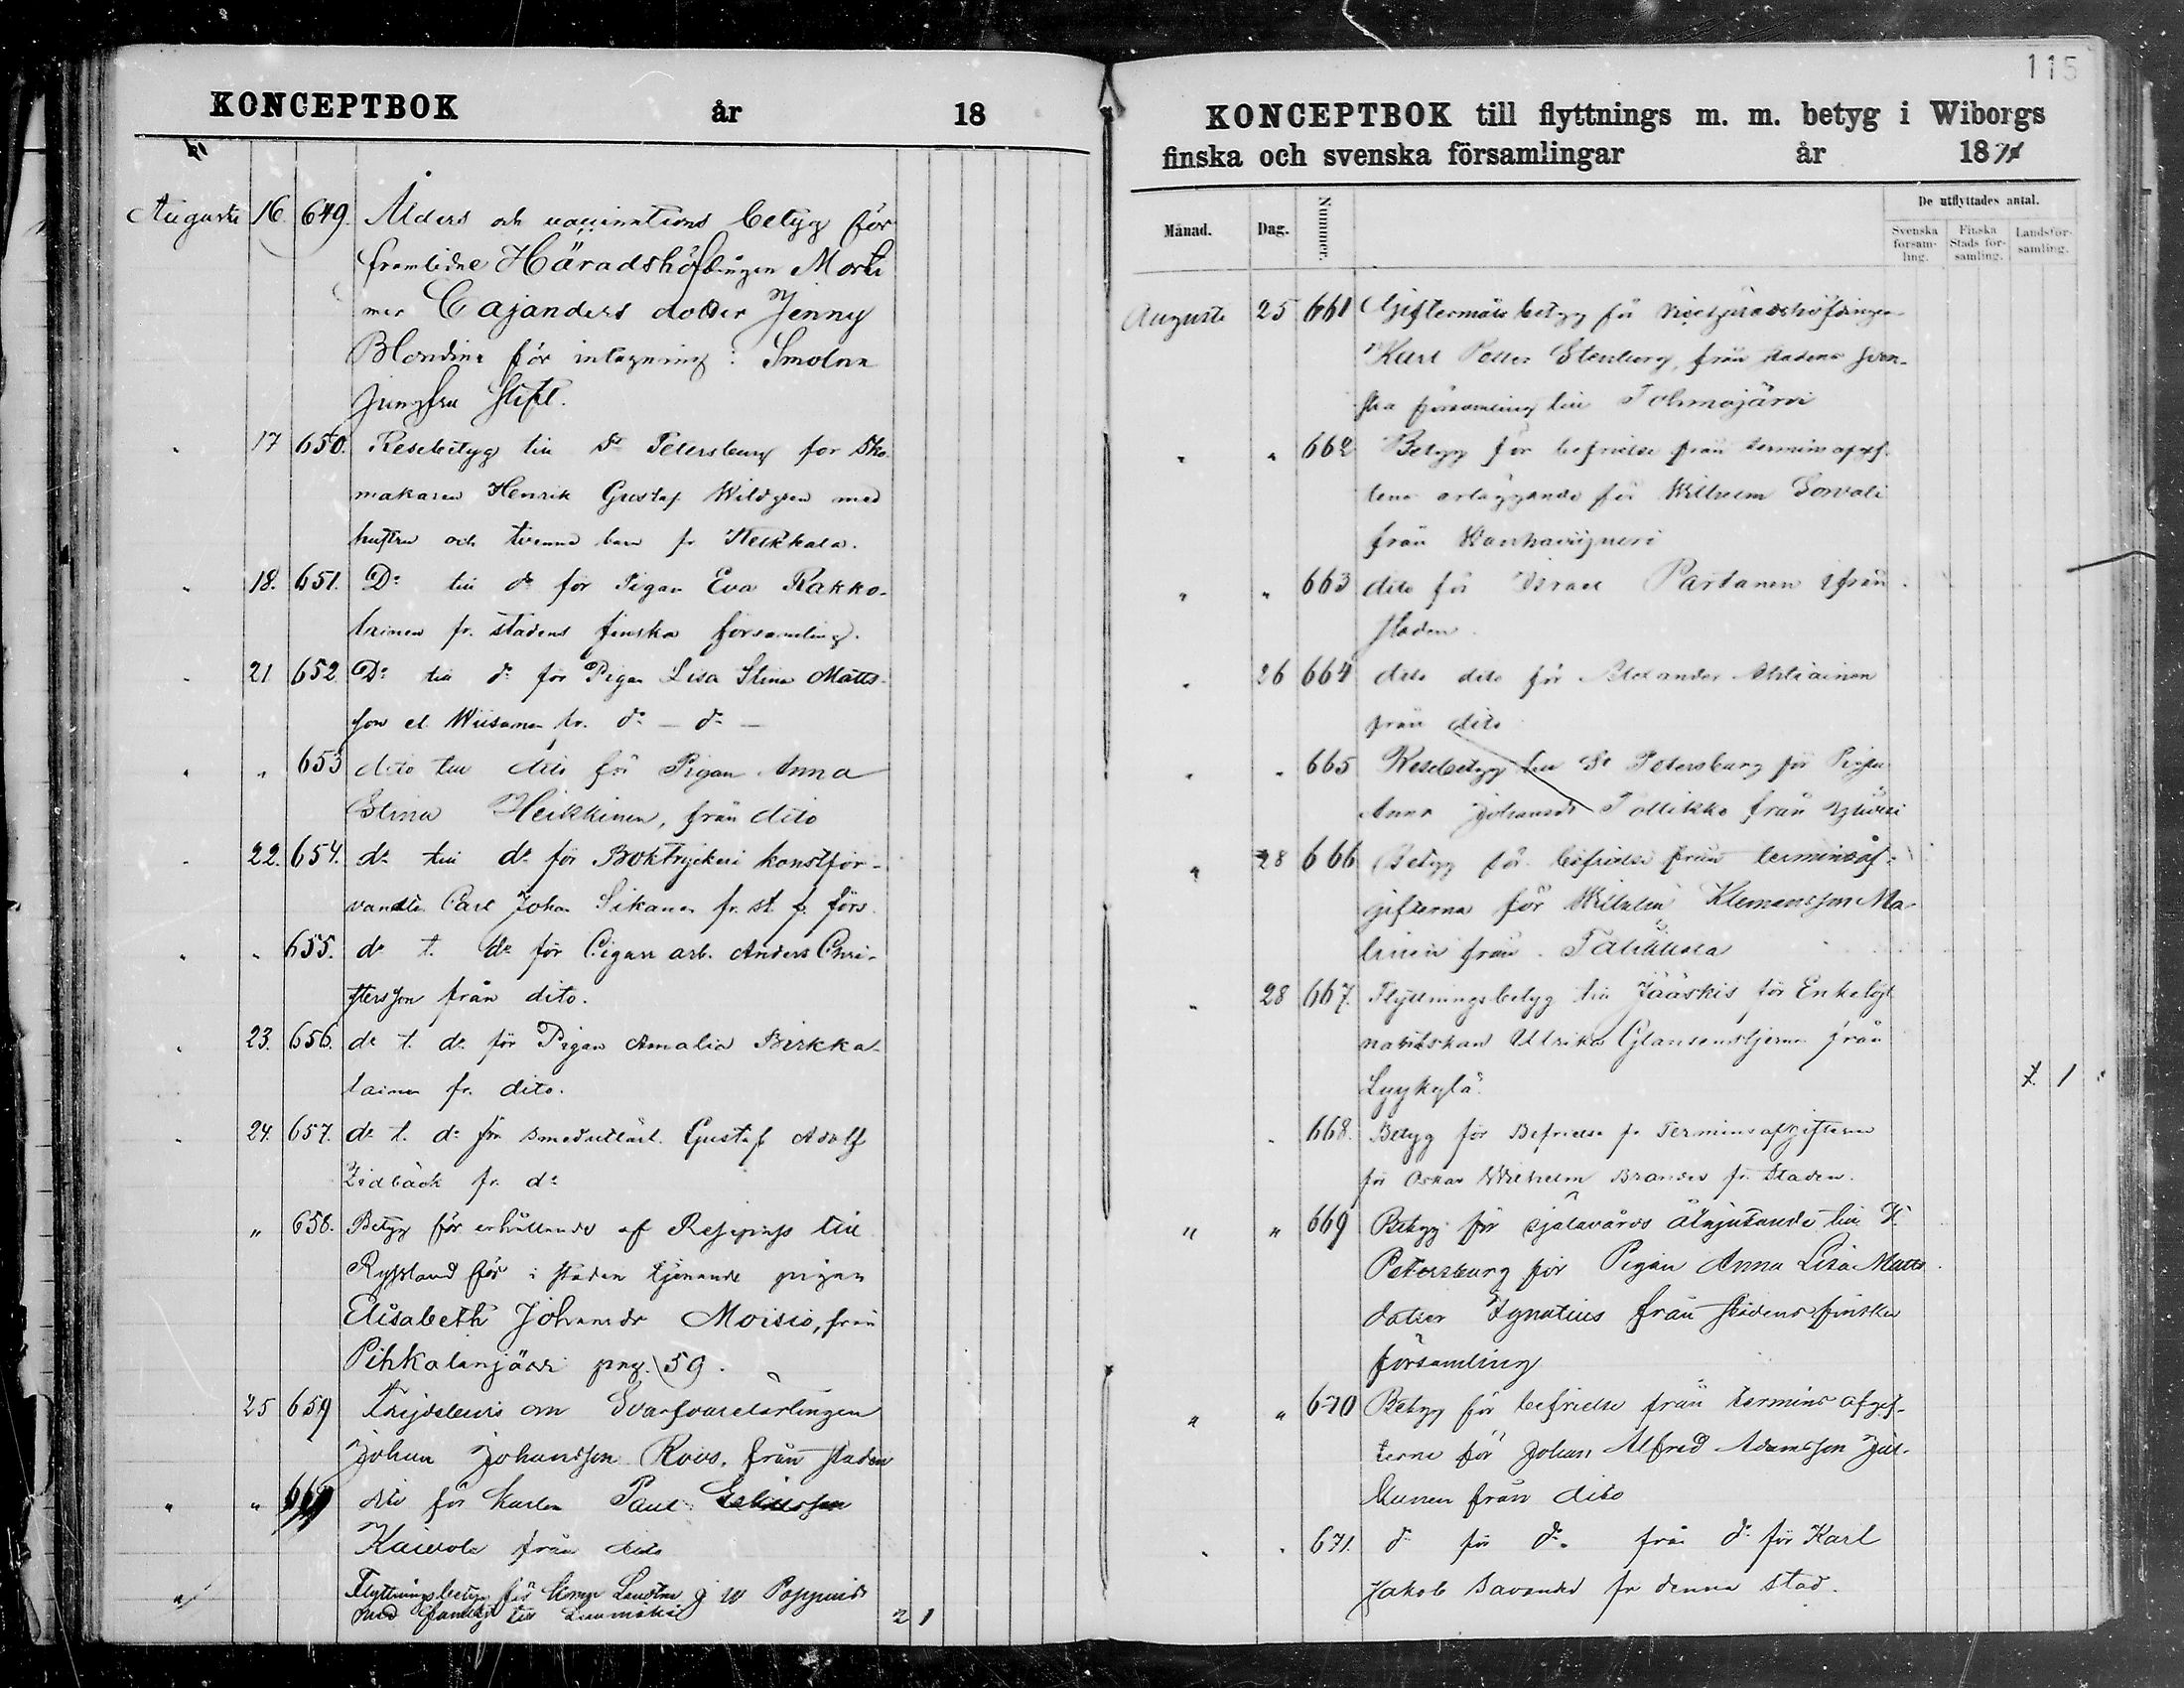 KONCEPTBOK år 18
Augusti 16. 649. Ålders och vaccinations betyg för
framlidne Häradshöfdingen Morti
mer Cajanders dotter Jenny
Blondine för intagning i Smolna
Jungfru Stift.
" 17 650. Resebetyg till St Petersburg för Sko
makaren Henrik Gustaf Wildgren med
hustru och tvenne barn fr.
" 18. 651. Do till do för Pigan Eva Kakko-
lainen fr. stadens finska församling.
" 21 652. Do till do för Pigan Lisa Stina Matts-
son el. Wiisanen fr. do - do -
" " 653 dito till dito för Pigan Anna
Stina Heikkinen, från dito
" 22. 654. do till do för Boktryckeri konstför-
vandten Carl Johan Sikanen fr. st. f. förs.
" " 655. do t. do för Cigarr arb. Anders Chri-
stersson från dito.
" 23. 656. do t. do för Pigan Amalia Pirkka-
lainen fr. dito.
" 24. 657. do t. do för Gustaf Adolf
Lidbäck fr. do
" 658. Betyg för erhållande af Respass till
Ryssland för i staden tjenande pigan
Elisabeth Johansdr Moisio, från
Pihkalanjärvi pag. 59.
25 659 Frejdebevis om Svarfvarelärlingen
Johan Johansson Roos, från staden
" " dito för Karlen Paul
Kaivola från dito
" Flyttningsbetyg för
med familj till 2 1
115
KONCEPTBOK till flyttnings m. m. betyg i Wiborgs
finska och svenska församlingar år 1871
Månad. Dag. Nummer. De utflyttades antal.
Svenska försam-ling. Finska Stads för-samling. Landsför-samling.
Augusti 25 661 Giftermåls betyg för vicehäradshöfdingen
Karl Petter Stenberg, från stadens sven-
ska församling till Tohmajärvi
" " 662 Betyg för befrielse från terminsafgif-
tens erläggande för Wilhelm Sorvali
från
" " 663 dito för Israel Partanen ifrån
staden.
" 26 664 dito dito för Alexander Ahtiainen
från dito
" " 665 Resebetyg till St Petersburg för Pigan
Anna Johansdr Tollikko från
" 28 666 Betyg för befrielse från terminsaf-
gifterna för Wilhelm Klemensson Ma-
linen från
" 28 667. Flyttningsbetyg till Jääskis för Enkelöjt
nantskan Ulrika Glansenstjerna från
Lyykylä. 1
" 668. Betyg för Befrielse fr. Terminsafgifterna
för Oskar Wilhelm Brander fr. Staden.
" " 669 Betyg för själavårds åtnjutande till St.
Petersburg för Pigan Anna Lisa Matts
dotter Ignatius från stadens finska
församling
" " 670 Betyg för befrielse från termins afgif-
terna för Johan Alfred Adamsson
från dito
" " 671. do för do från do för Karl
Jakob Savander fr denna stad.